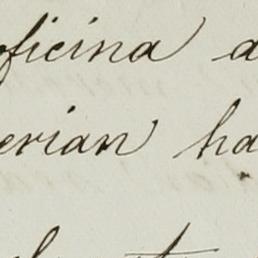 oficina a
erian ha